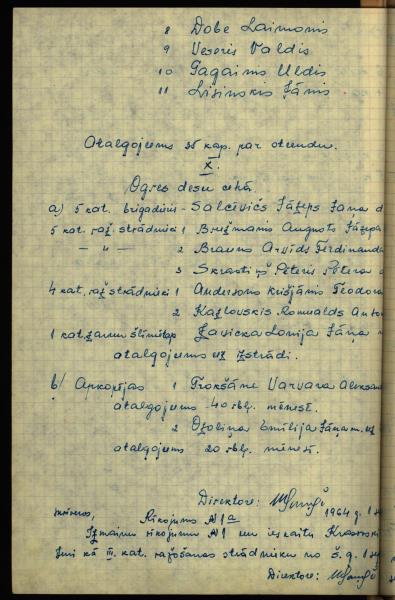 8 Dobe Laimonis
9 Veseris Valdis
10 Gagainis Uldis
11 Lisinskis Jānis
Atalgojums 35 kap. par stundu.
X.
Ogres desu cehā.
a) 5 kat. brigadieris - Salcēvičs Jāzeps Jāņa d
5 kat. raž. strādnieki 1 Brežmanis Augusts Jāzepa
- " - 2 Brauns Arvīds Ferdinanda
3 Skrastiņš Pēteris Pētera d
4 kat. raž. strādnieki 1 Andersons Krišjānis Teodora
2 Kazlovskis Romualds Anto
1 kat. zarnu Zavicka Lonija Jāņa m
atalgojums uz izstrādi.
b/ Apkopējas 1 Trokšāne Varvara Aleksan
atalgojums - 40 rbļ. mēnesī.
2 Ozoliņa Emīlija Jāņa m. uz
atalgojums 20 rbļ. mēnesī.
Direktors:
Rīkojums N 1a 1964 g. 1
Izmainu rīkojumu N 1 un ieskaitu
kā III. kat. ražošanas strādnieku no š. g. 1
Direktors: